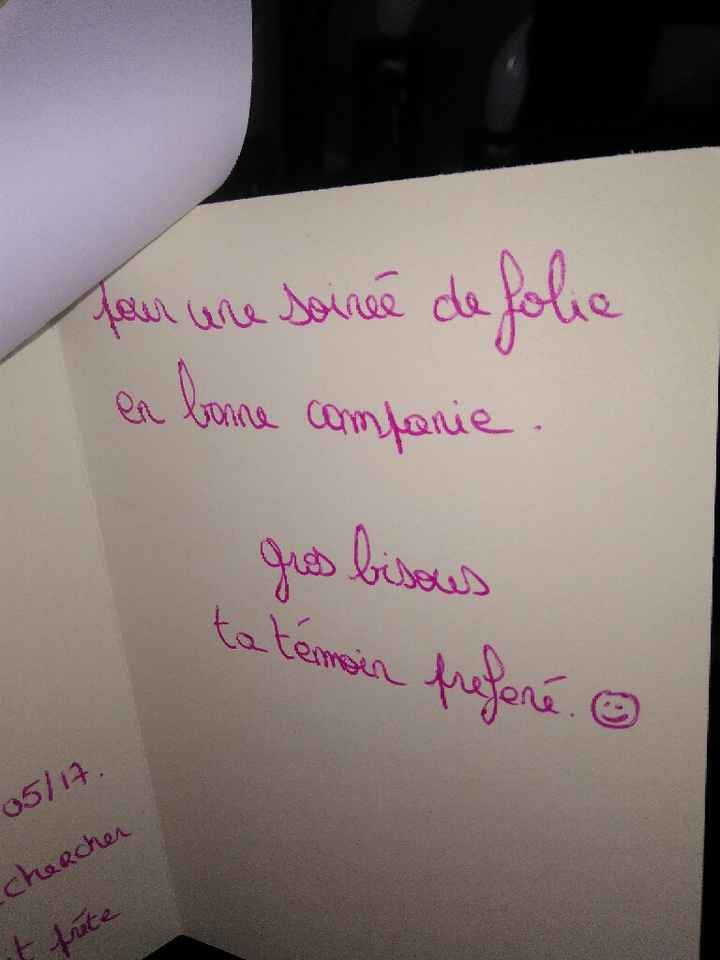 05/17.
chercher
t prête
pour une soirée de folie
en bonne compagnie.
gros bisous
ta témoin preferé.